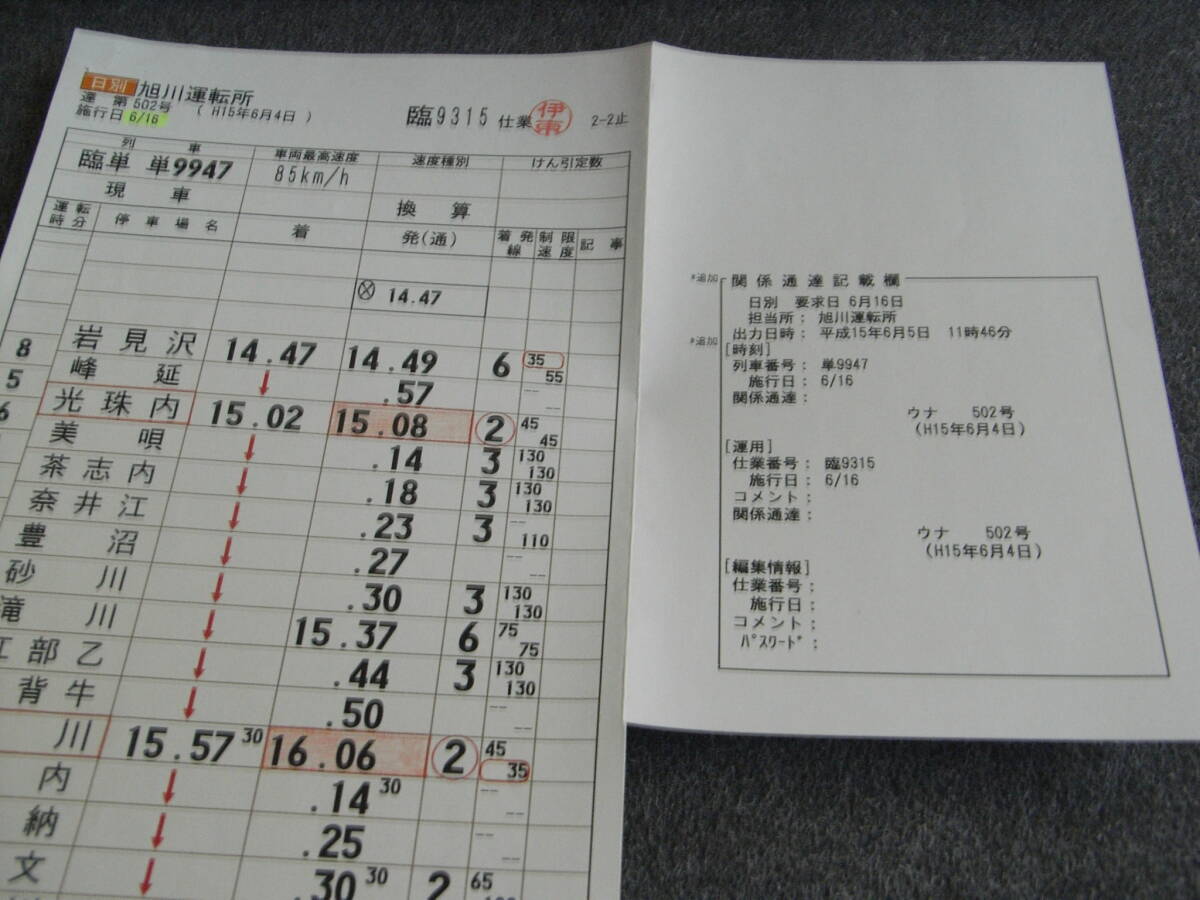 日別 旭川運転所
運 第502号 ( H15年6月4日 )
施行日 6/16
臨9315 仕業 伊東 2-2止
列 車 車両最高速度 速度種別 けん引定数
臨単 単9947 85km/h
現 車 換 算
運転時分 停車場名 着 発(通) 着発線 制限速度 記 事
14.47
8 岩見沢 14.47 14.49 6 35 55
5 峰延 ↓ .57 -- --
6 光珠内 15.02 15.08 2 45 45
美唄 ↓ .14 3 130 130
茶志内 ↓ .18 3 130 130
奈井江 ↓ .23 3 -- 110
豊沼 ↓ .27 -- --
砂川 ↓ .30 3 130 130
滝川 ↓ 15.37 6 75 75
江部乙 ↓ .44 3 130 130
背牛 ↓ .50 -- --
川 15.57 30 16.06 2 45 35
内 ↓ .14 30 -- --
納 ↓ .25 -- --
文 ↓ .30 30 2 65
*追加 関係通達記載欄
日別 要求日 6月16日
担当所: 旭川運転所
出力日時: 平成15年6月5日 11時46分
*追加 [時刻]
列車番号: 単9947
施行日: 6/16
関係通達:
ウナ 502号
(H15年6月4日)
[運用]
仕業番号: 臨9315
施行日: 6/16
コメント:
関係通達:
ウナ 502号
(H15年6月4日)
[編集情報]
仕業番号:
施行日:
コメント:
ﾊﾟｽﾜｰﾄﾞ: